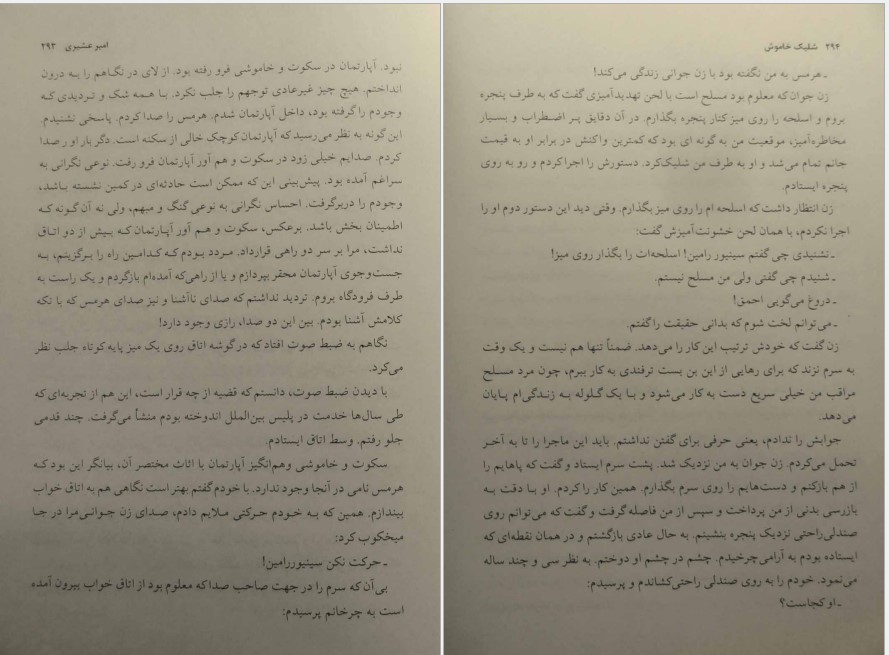 امیر عشیری ۲۹۳
نبود. آپارتمان در سکوت و خاموشی فرو رفته بود. از لای در نگاهم را به درون
انداختم. هیچ چیز غیرعادی توجهم را جلب نکرد. با همه شک و تردیدی که
وجودم را گرفته بود، داخل آپارتمان شدم. هرمس را صدا کردم. پاسخی نشنیدم.
این گونه به نظر می‌رسید که آپارتمان کوچک خالی از سکنه است. دگر بار او را صدا
کردم. صدایم خیلی زود در سکوت و هم آور آپارتمان فرو رفت. نوعی نگرانی به
سراغم آمده بود. پیش‌بینی این که ممکن است حادثه‌ای در کمین نشسته باشد،
وجودم را دربرگرفت. احساس نگرانی به نوعی گنگ و مبهم، ولی نه آن گونه که
اطمینان بخش باشد. برعکس، سکوت و هم آور آپارتمان که بیش از دو اتاق
نداشت، مرا بر سر دو راهی قرارداد. مردد بودم که کدامین راه را برگزینم، به
جست‌وجوی آپارتمان محقر بپردازم و یا از راهی که آمده‌ام بازگردم و یک راست به
طرف فرودگاه بروم. تردید نداشتم که صدای ناآشنا و نیز صدای هرمس که با تکه
کلامش آشنا بودم. بین این دو صدا، رازی وجود دارد!
نگاهم به ضبط صوت افتاد که در گوشه اتاق روی یک میز پایه کوتاه جلب نظر
می‌کرد.
با دیدن ضبط صوت، دانستم که قضیه از چه قرار است، این هم از تجربه‌ای که
طی سال‌ها خدمت در پلیس بین‌الملل اندوخته بودم منشأ می‌گرفت. چند قدمی
جلو رفتم. وسط اتاق ایستادم.
سکوت و خاموشی وهم‌انگیز آپارتمان با اثاث مختصر آن، بیانگر این بود که
هرمس نامی در آنجا وجود ندارد. با خودم گفتم بهتر است نگاهی هم به اتاق خواب
بیندازم. همین که به خودم حرکتی ملایم دادم، صدای زن جوانی مرا در جا
میخکوب کرد:
ـ حرکت نکن سینیور رامین!
بی‌آن که سرم را در جهت صاحب صدا که معلوم بود از اتاق خواب بیرون آمده
است به چرخانم پرسیدم:
۲۹۴ شلیک خاموش
ـ هرمس به من نگفته بود با زن جوانی زندگی می‌کند!
زن جوان که معلوم بود مسلح است با لحن تهدیدآمیزی گفت که به طرف پنجره
بروم و اسلحه را روی میز کنار پنجره بگذارم. در آن دقایق پر اضطراب و بسیار
مخاطره‌آمیز، موقعیت من به گونه ای بود که کمترین واکنش در برابر او به قیمت
جانم تمام می شد و او به طرف من شلیک کرد. دستورش را اجرا کردم و رو به روی
پنجره ایستادم.
زن انتظار داشت که اسلحه ام را روی میز بگذارم. وقتی دید این دستور دوم او را
اجرا نکردم، با همان لحن خشونت‌آمیزش گفت:
ـ نشنیدی چی گفتم سینیور رامین! اسلحه‌ات را بگذار روی میز!
ـ شنیدم چی گفتی ولی من مسلح نیستم.
ـ دروغ می‌گویی احمق!
ـ می‌توانم لخت شوم که بدانی حقیقت را گفتم.
زن گفت که خودش ترتیب این کار را می‌دهد. ضمناً تنها هم نیست و یک وقت
به سرم نزند که برای رهایی از این بن بست ترفندی به کار ببرم، چون مرد مسلح
مراقب من خیلی سریع دست به کار می‌شود و با یک گلوله به زندگی‌ام پایان
می‌دهد.
جوابش را ندادم، یعنی حرفی برای گفتن نداشتم. باید این ماجرا را تا به آخر
تحمل می‌کردم. زن جوان به من نزدیک شد. پشت سرم ایستاد و گفت که پاهایم را
از هم بازکنم و دست‌هایم را روی سرم بگذارم. همین کار را کردم. او با دقت به
بازرسی بدنی از من پرداخت و سپس از من فاصله گرفت و گفت که می‌توانم روی
صندلی راحتی نزدیک پنجره بنشینم. به حال عادی بازگشتم و در همان نقطه‌ای که
ایستاده بودم به آرامی چرخیدم. چشم در چشم او دوختم. به نظر سی و چند ساله
می‌نمود. خودم را به روی صندلی راحتی کشاندم و پرسیدم:
ـ او کجاست؟